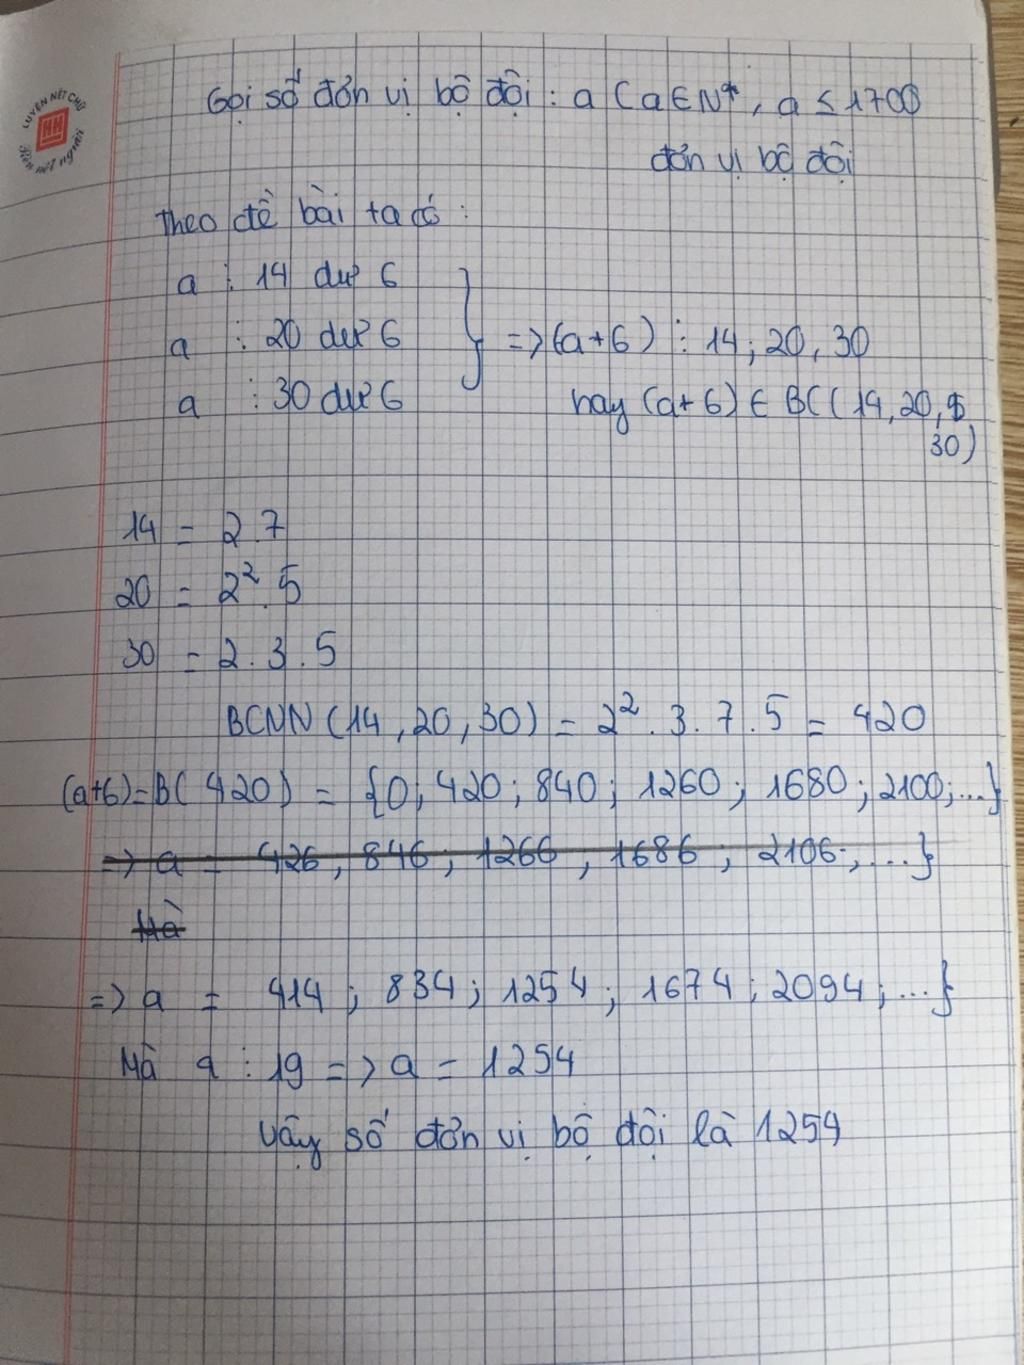 LUYỆN NÉT CHỮ
Rèn nết người
Gọi số đơn vị bộ đội : a ( a ∈ N*, a ≤ 1700
đơn vị bộ đội
Theo đề bài ta có :
a ⋮ 14 dư 6
a ⋮ 20 dư 6 } => (a+6) ⋮ 14; 20, 30
a ⋮ 30 dư 6 hay (a+6) ∈ BC(14, 20,
30)
14 = 2.7
20 = 2².5
30 = 2.3.5
BCNN(14,20,30) = 2².3.7.5 = 420
(a+6)=B( 420) = {0; 420; 840; 1260; 1680; 2100;...}
=> a = 426, 846; 1266, 1686; 2106;,...}
Mà
=> a = 414; 834; 1254; 1674; 2094; ...}
Mà a ⋮ 19 => a = 1254
Vậy số đơn vị bộ đội là 1254